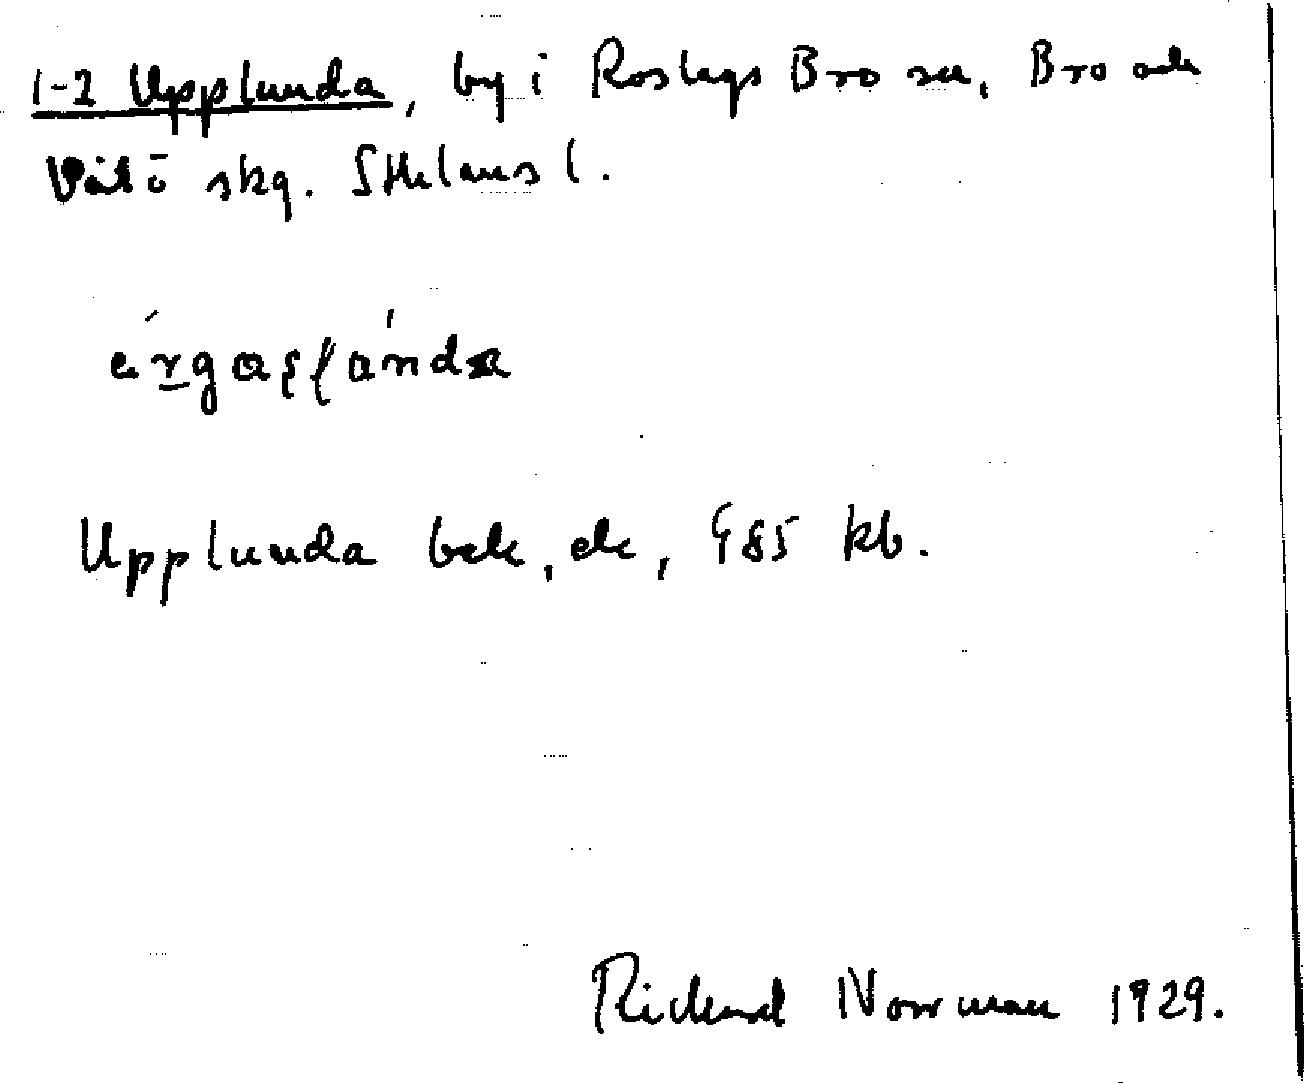 1-2 Upplunda, by i Roslags Bro sn, Bro och
Vätö skg. Sthlms l.
Upplunda bek, ek, 985 kb.
Rickard Norrman 1929.